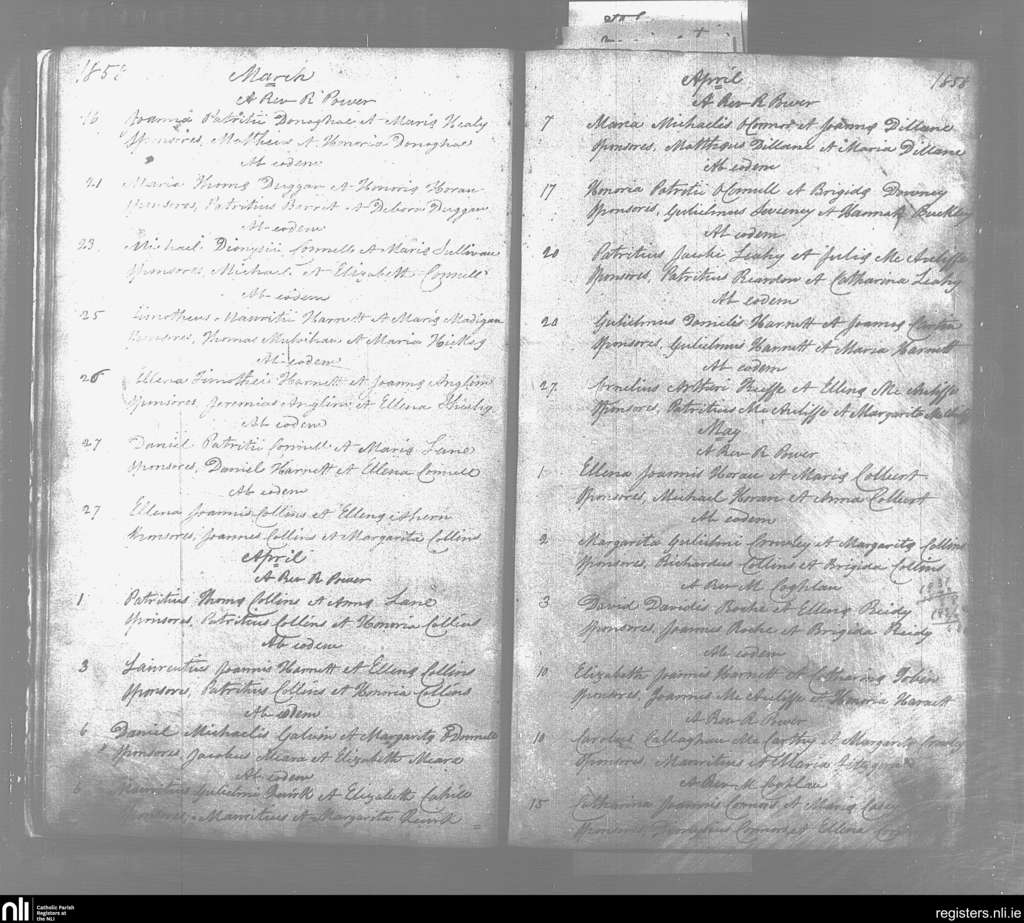 1858
March
A Rev R Power
16 Joanna Patritii Donoghue et Maria Healy
Sponsores, Mattheus et Honoria Donoghue
Ab eodem
21 Maria Thoma Duggan et Honoria Horan
Sponsores, Patritius Barret et Debora Duggan
Ab eodem
23 Michael Dionysii Connell et Maria Sullivan
Sponsores, Michael et Elizabeth Connell
Ab eodem
25 Timotheus Mauritii Harnett et Maria Madigan
Sponsores, Thomas Mulvihan et Maria Hickey
Ab eodem
26 Ellena Timothei Harnett et Joanna Anglim
Sponsores Jeremias Anglim et Ellena
Ab eodem
27 Daniel Patritii Connell et Maria Lane
Sponsores, Daniel Harnett et Ellena Connell
Ab eodem
27 Ellena Joannis Collins et Ellena Ahern
Sponsores, Joannes Collins et Margarita Collins
April
A Rev R Power
1 Patritius Thoma Collins et Anna Lane
Sponsores, Patritius Collins et Honoria Collins
Ab eodem
3 Laurentius Joannis Harnett et Ellena Collins
Sponsores, Patritius Collins et Honoria Collins
Ab eodem
6 Daniel Michaelis Galvin et Margarita O Donnell
Sponsores, Jacobus Meara et Elizabeth Meara
Ab eodem
6 Mauritius Gulielmi Quirk et Elizabeth Cahill
Sponsores, Mauritius et Margarita Quirk
April
1858
A Rev R Power
7 Maria Michaelis O Connor et Joanna Dillane
Sponsores, Mattheus Dillane et Maria Dillane
Ab eodem
17 Honoria Patritii O Connell et Brigida Downey
Sponsores, Gulielmus Sweeney et Hannah Buckley
Ab eodem
20 Patritius Jacobi Leahy et Julia Mc Auliffe
Sponsores, Patritius Reardon et Catharina Leahy
Ab eodem
20 Gulielmus Danielis Harnett et Joanna
Sponsores, Gulielmus Harnett et Maria Harnett
Ab eodem
27 Cornelius Arthuri Keeffe et Ellena Mc Auliffe
Sponsores, Patritius Mc Auliffe et Margarita
May
A Rev R Power
1 Ellena Joannis Horan et Maria Colbert
Sponsores, Michael Horan et Anna Colbert
Ab eodem
2 Margarita Gulielmi Crowley et Margarita Collins
Sponsores, Richardus Collins et Brigida Collins
A Rev M Coghlan
3 David Davidis Roche et Ellena Reidy
Sponsores, Joannes Roche et Brigida Reidy
Ab eodem
10 Elizabeth Joannis Harnett et Catharina Tobin
Sponsores, Joannes Mc Auliffe et Honoria Harnett
A Rev R Power
10 Carolus Callaghan Mc Carthy et Margarita Crowly
Sponsores, Mauritius et Maria Fitzgerald
A Rev M Coghlan
15 Catharina Joannis Connors et Maria Casey
Sponsores, Dionysius Connors et Ellena
nli Catholic Parish
Registers at
the NLI
registers.nli.ie